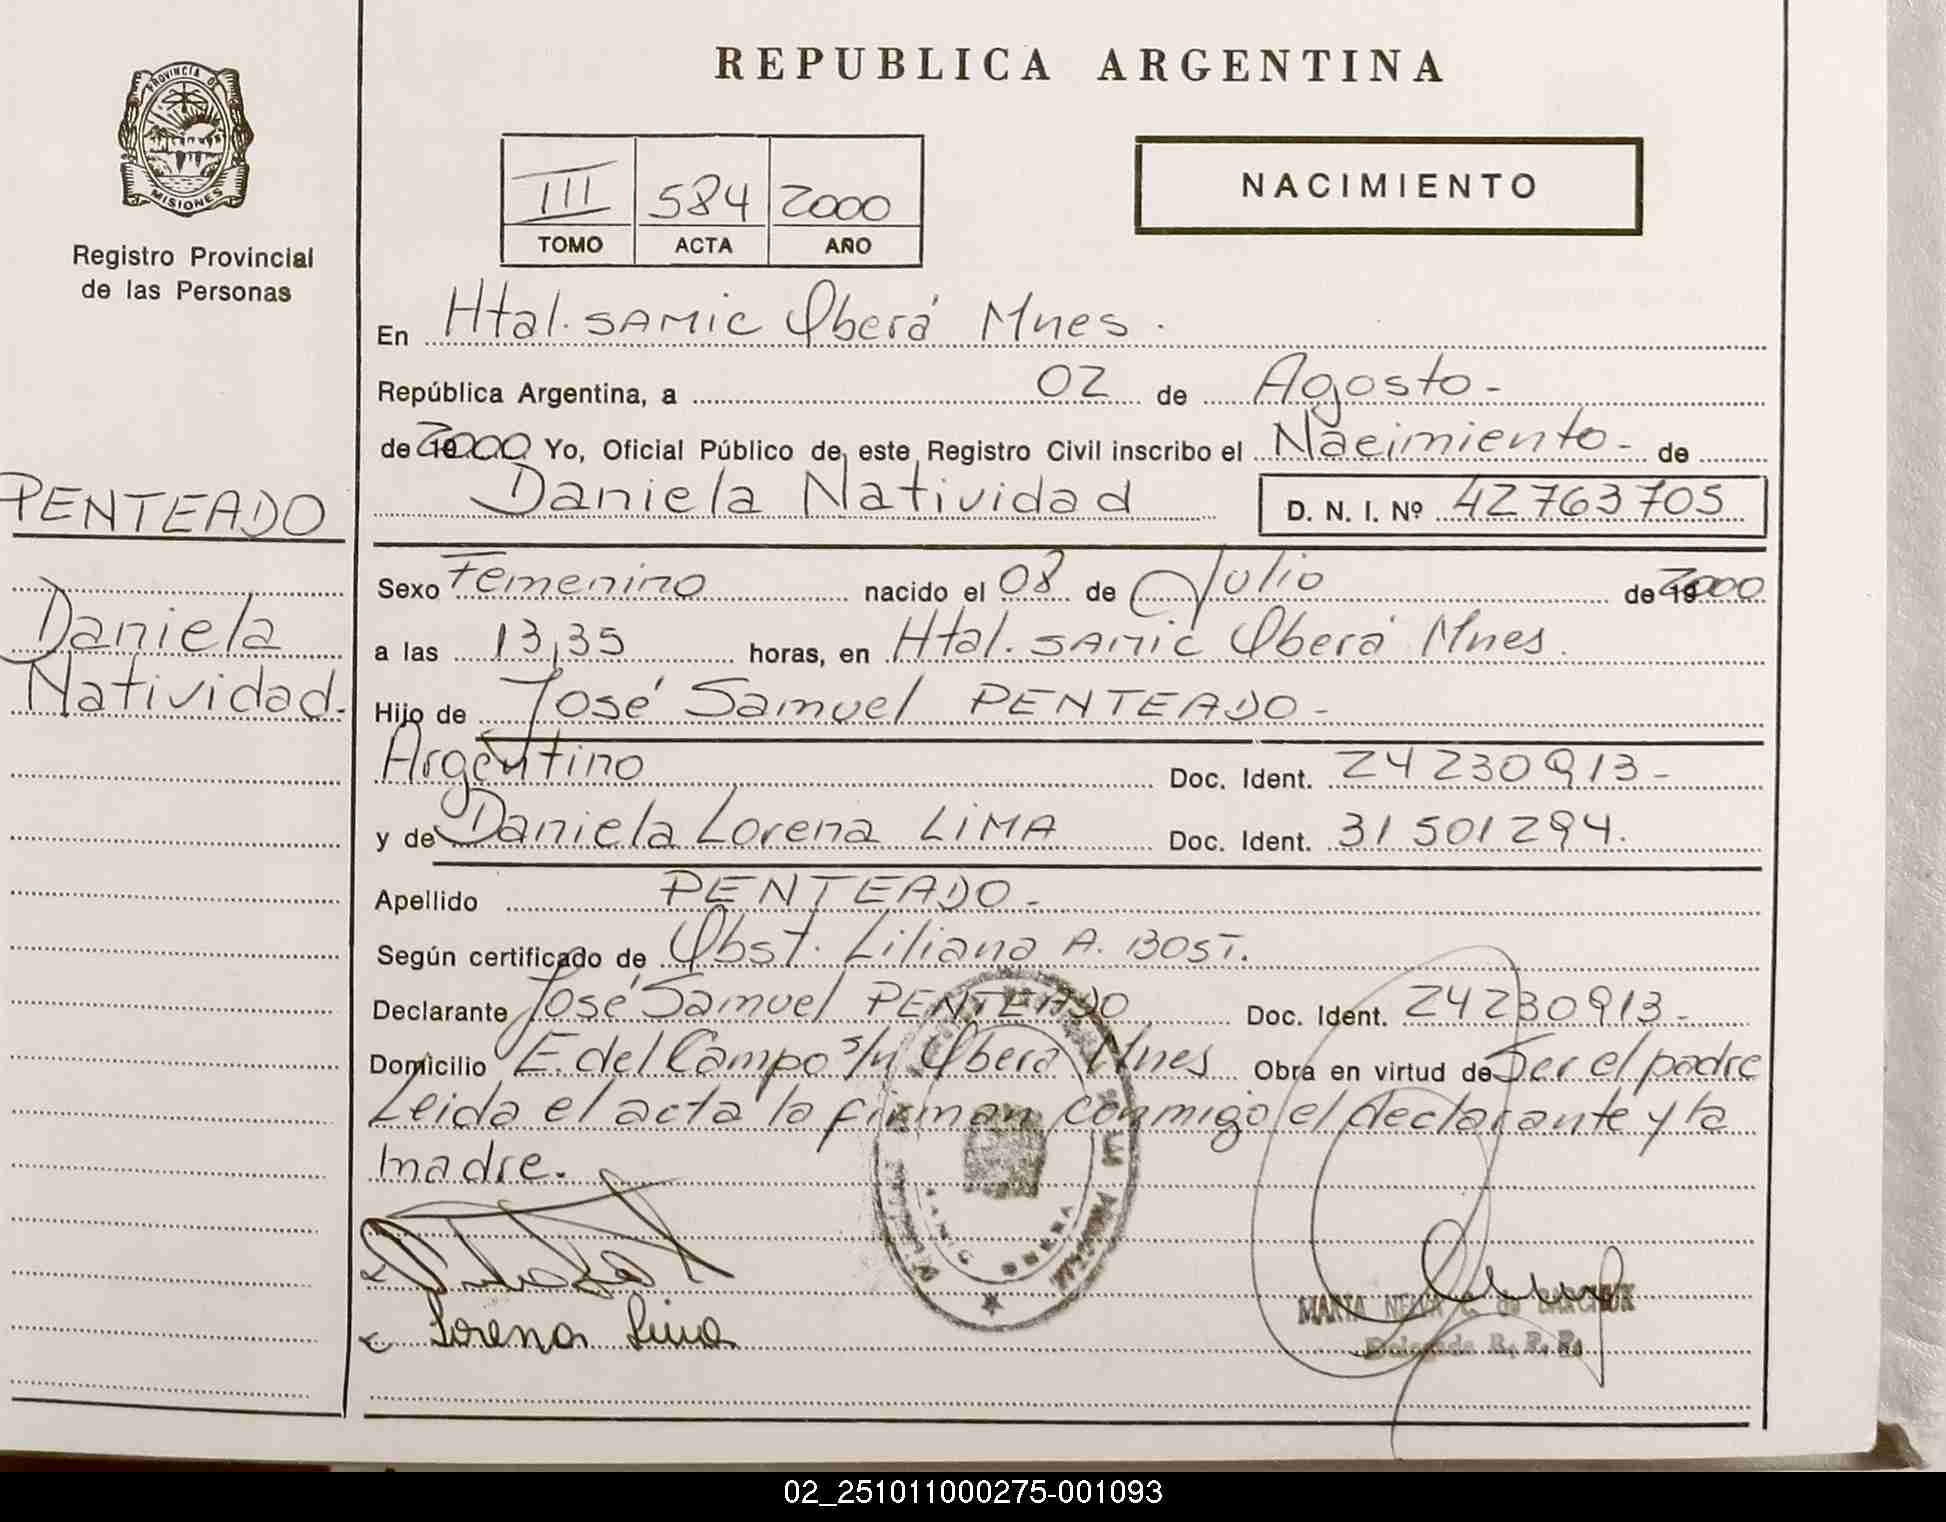 PROVINCIA D
MISIONES
Registro Provincial
de las Personas
PENTEADO
Daniela
Natividad.
REPUBLICA ARGENTINA
III 584 2000
TOMO ACTA AÑO
NACIMIENTO
En Htal. SAMIC Oberá Mnes.
República Argentina, a 02 de Agosto-
de 2000 Yo, Oficial Público de este Registro Civil inscribo el Nacimiento- de
Daniela Natividad D. N. I. Nº 42763705
Sexo Femenino nacido el 08 de Julio de 2000
a las 13,35 horas, en Htal. SAMIC Oberá Mnes.
Hijo de José Samuel PENTEADO-
Argentino Doc. Ident. 24230913-
y de Daniela Lorena LIMA Doc. Ident. 31501294.
Apellido PENTEADO-
Según certificado de Obst. Liliana A. BOST.
Declarante José Samuel PENTEADO Doc. Ident. 24230913-
Domicilio E. del Campo s/n Oberá Mnes Obra en virtud de Ser el padre
Leida el acta la firman conmigo el declarante y la
madre.
Lorena Lima
MARIA NELVA C. de
Delegada R. P. P.
02_251011000275-001093